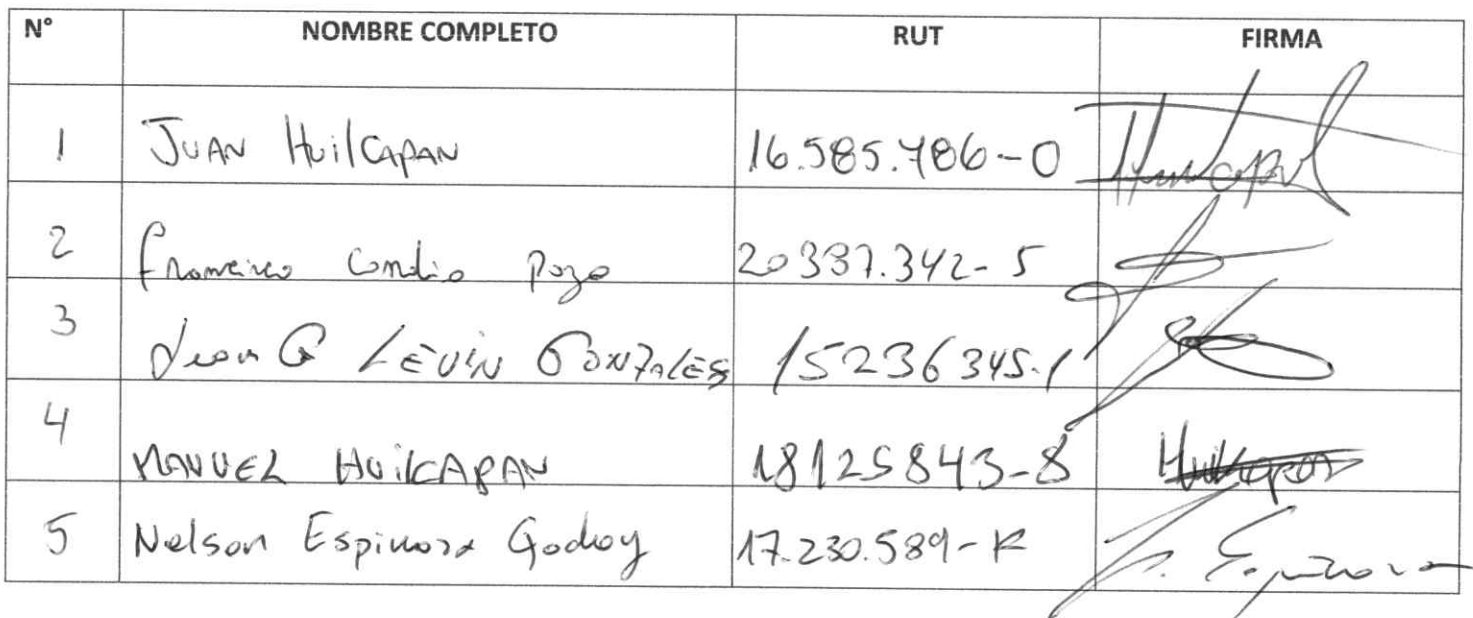 N° NOMBRE COMPLETO RUT FIRMA
1 JUAN HuilCAPAN 16.585.786-0 Huilcapan
2 Francisco Pozo 20337.342-5
3 Juan G LEVIN GONZALES 15236345-1
4 MANUEL HUilCAPAN 18125843-8 Huilcapan
5 Nelson Espinoza Godoy 17.230.589-K Espinoza